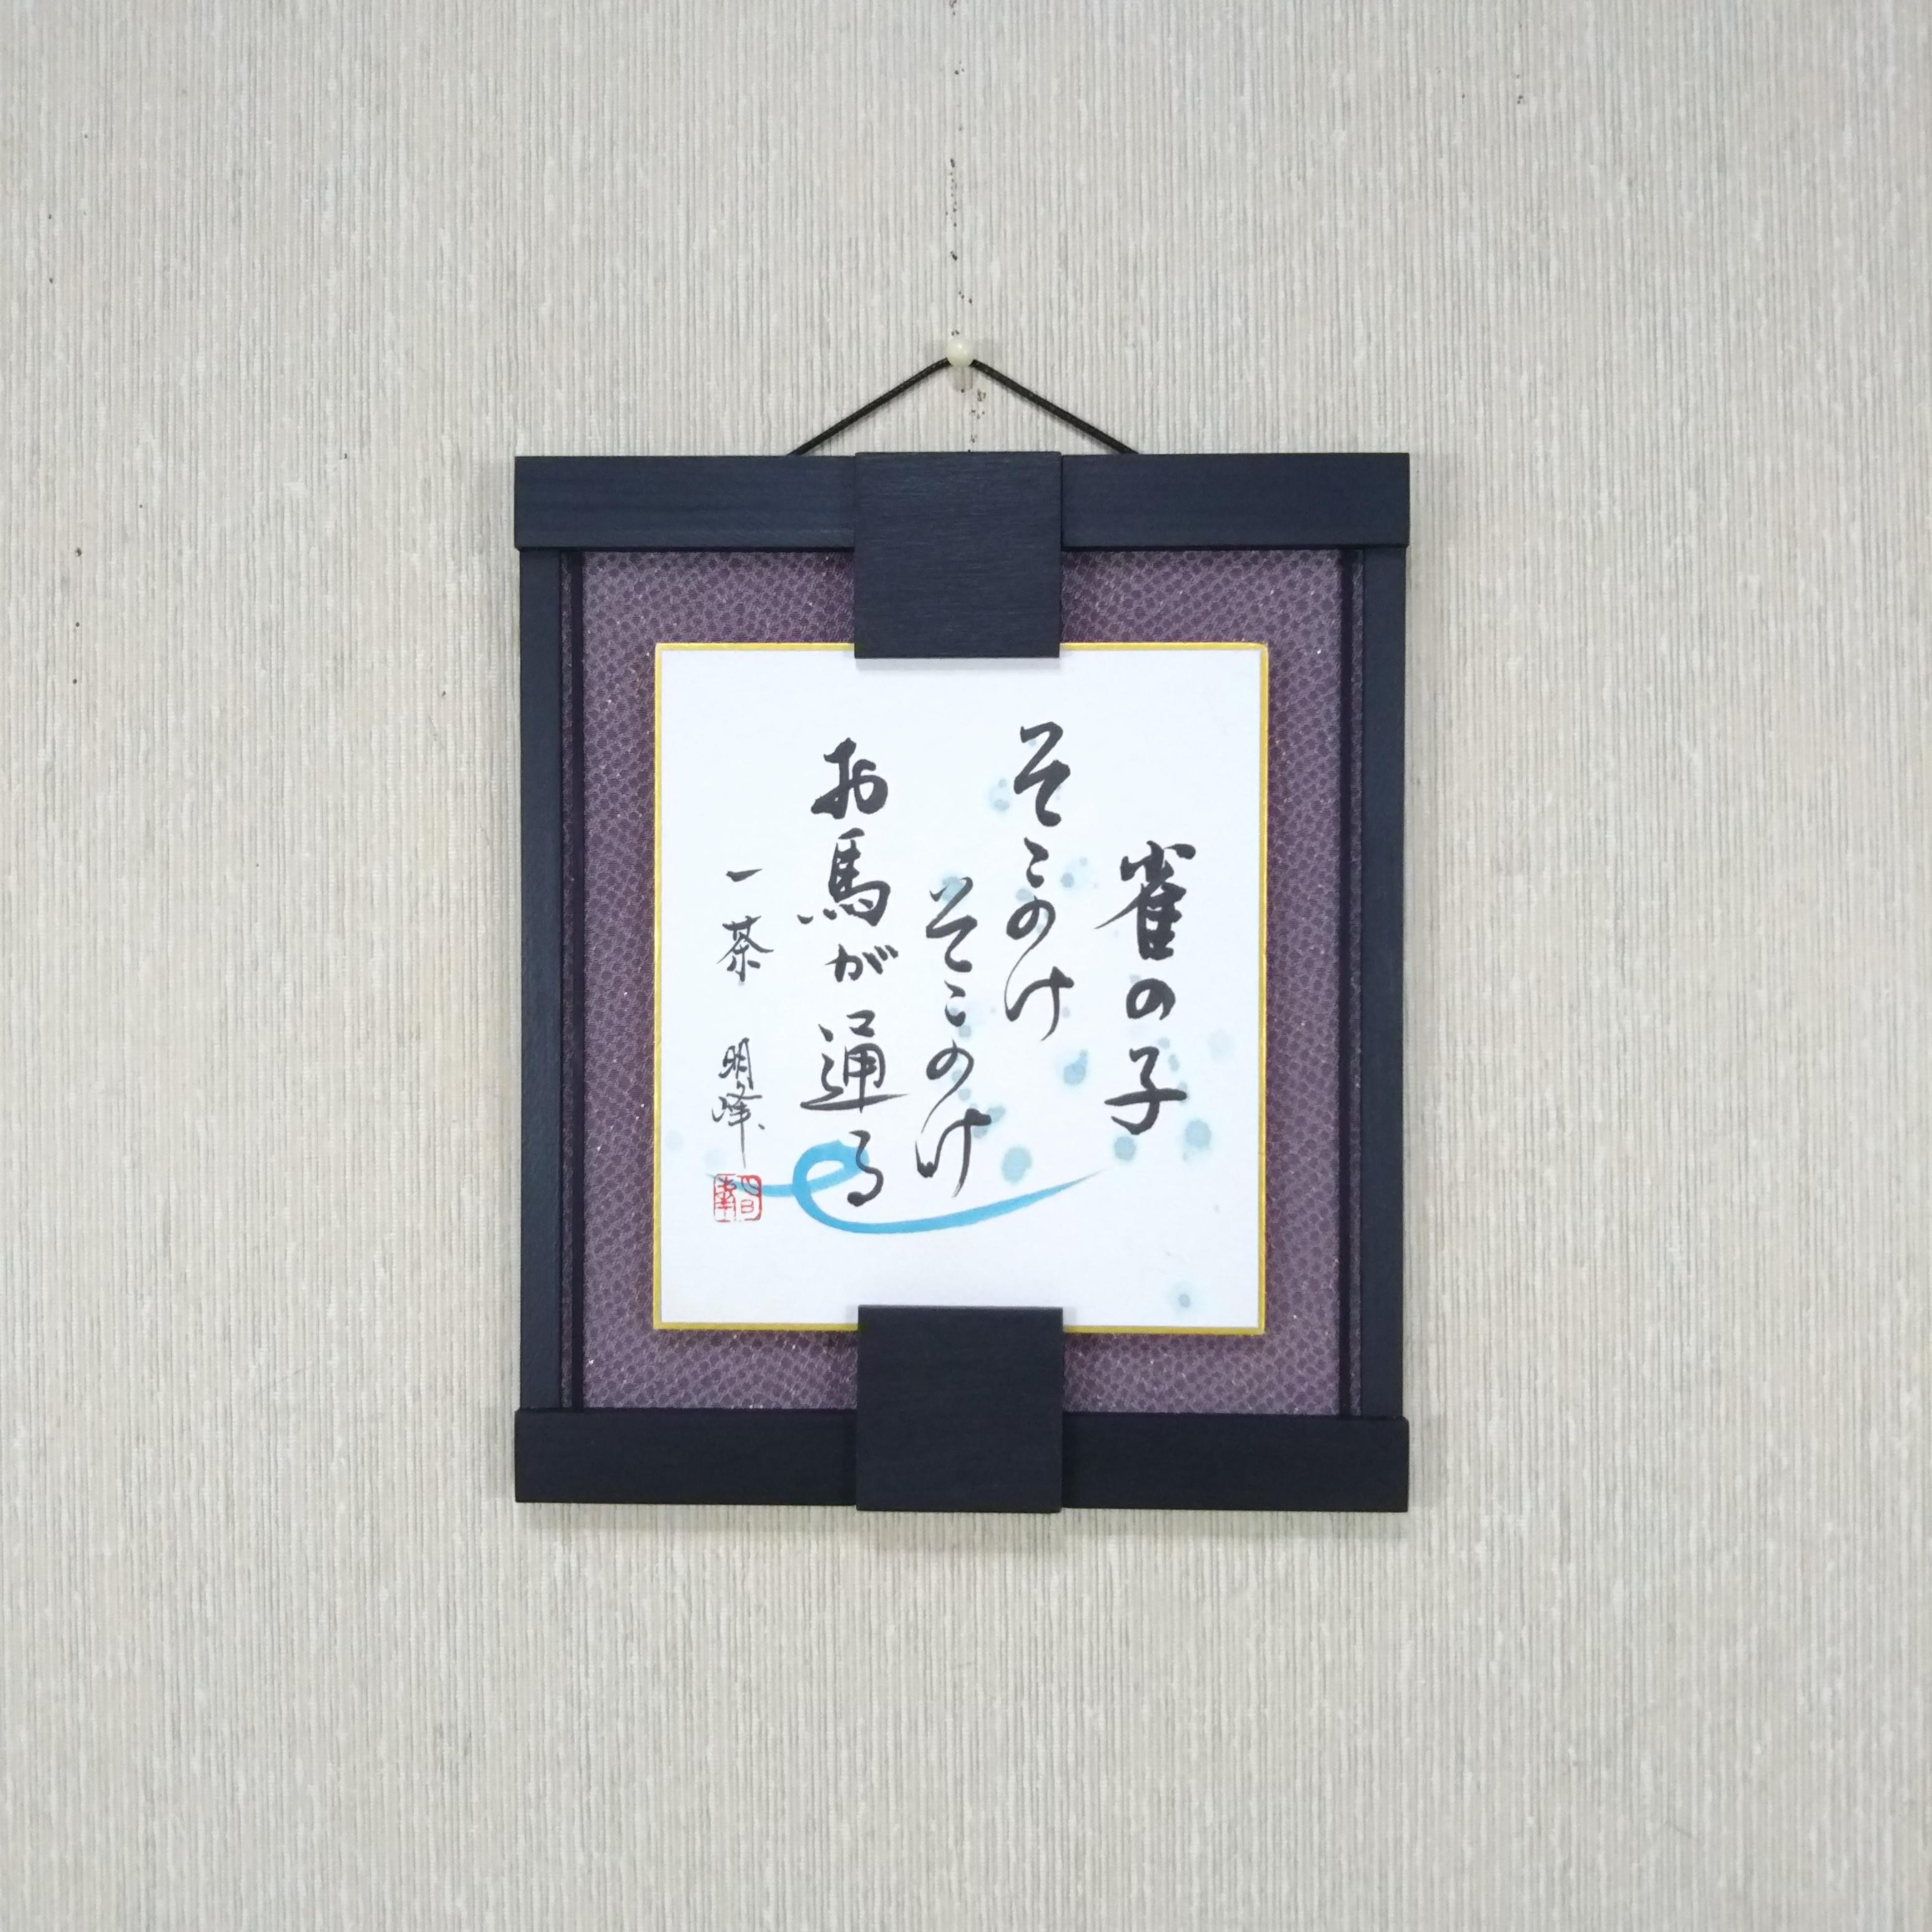 雀の子
そこのけ
そこのけ
お馬が通る
一茶 明峰